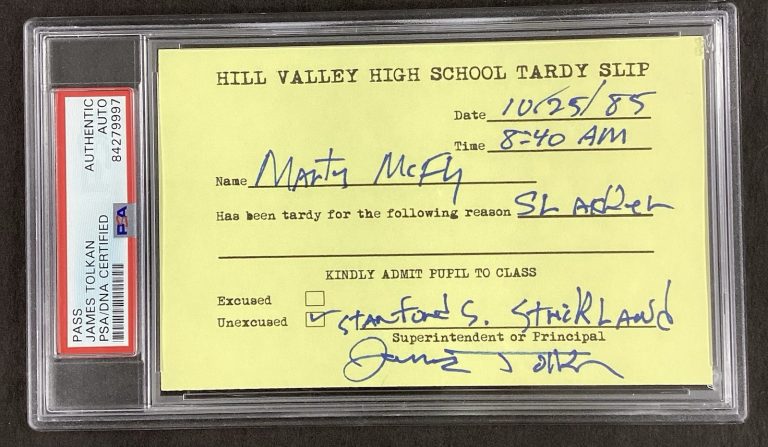 PASS
JAMES TOLKAN
PSA/DNA CERTIFIED
AUTHENTIC
AUTO
84279997
PSA
HILL VALLEY HIGH SCHOOL TARDY SLIP
Date 10/25/85
Time 8:40 AM
Name Marty McFly
Has been tardy for the following reason SLACKER
KINDLY ADMIT PUPIL TO CLASS
Excused
Unexcused Stanford S. Strickland
Superintendent or Principal
James Tolkan